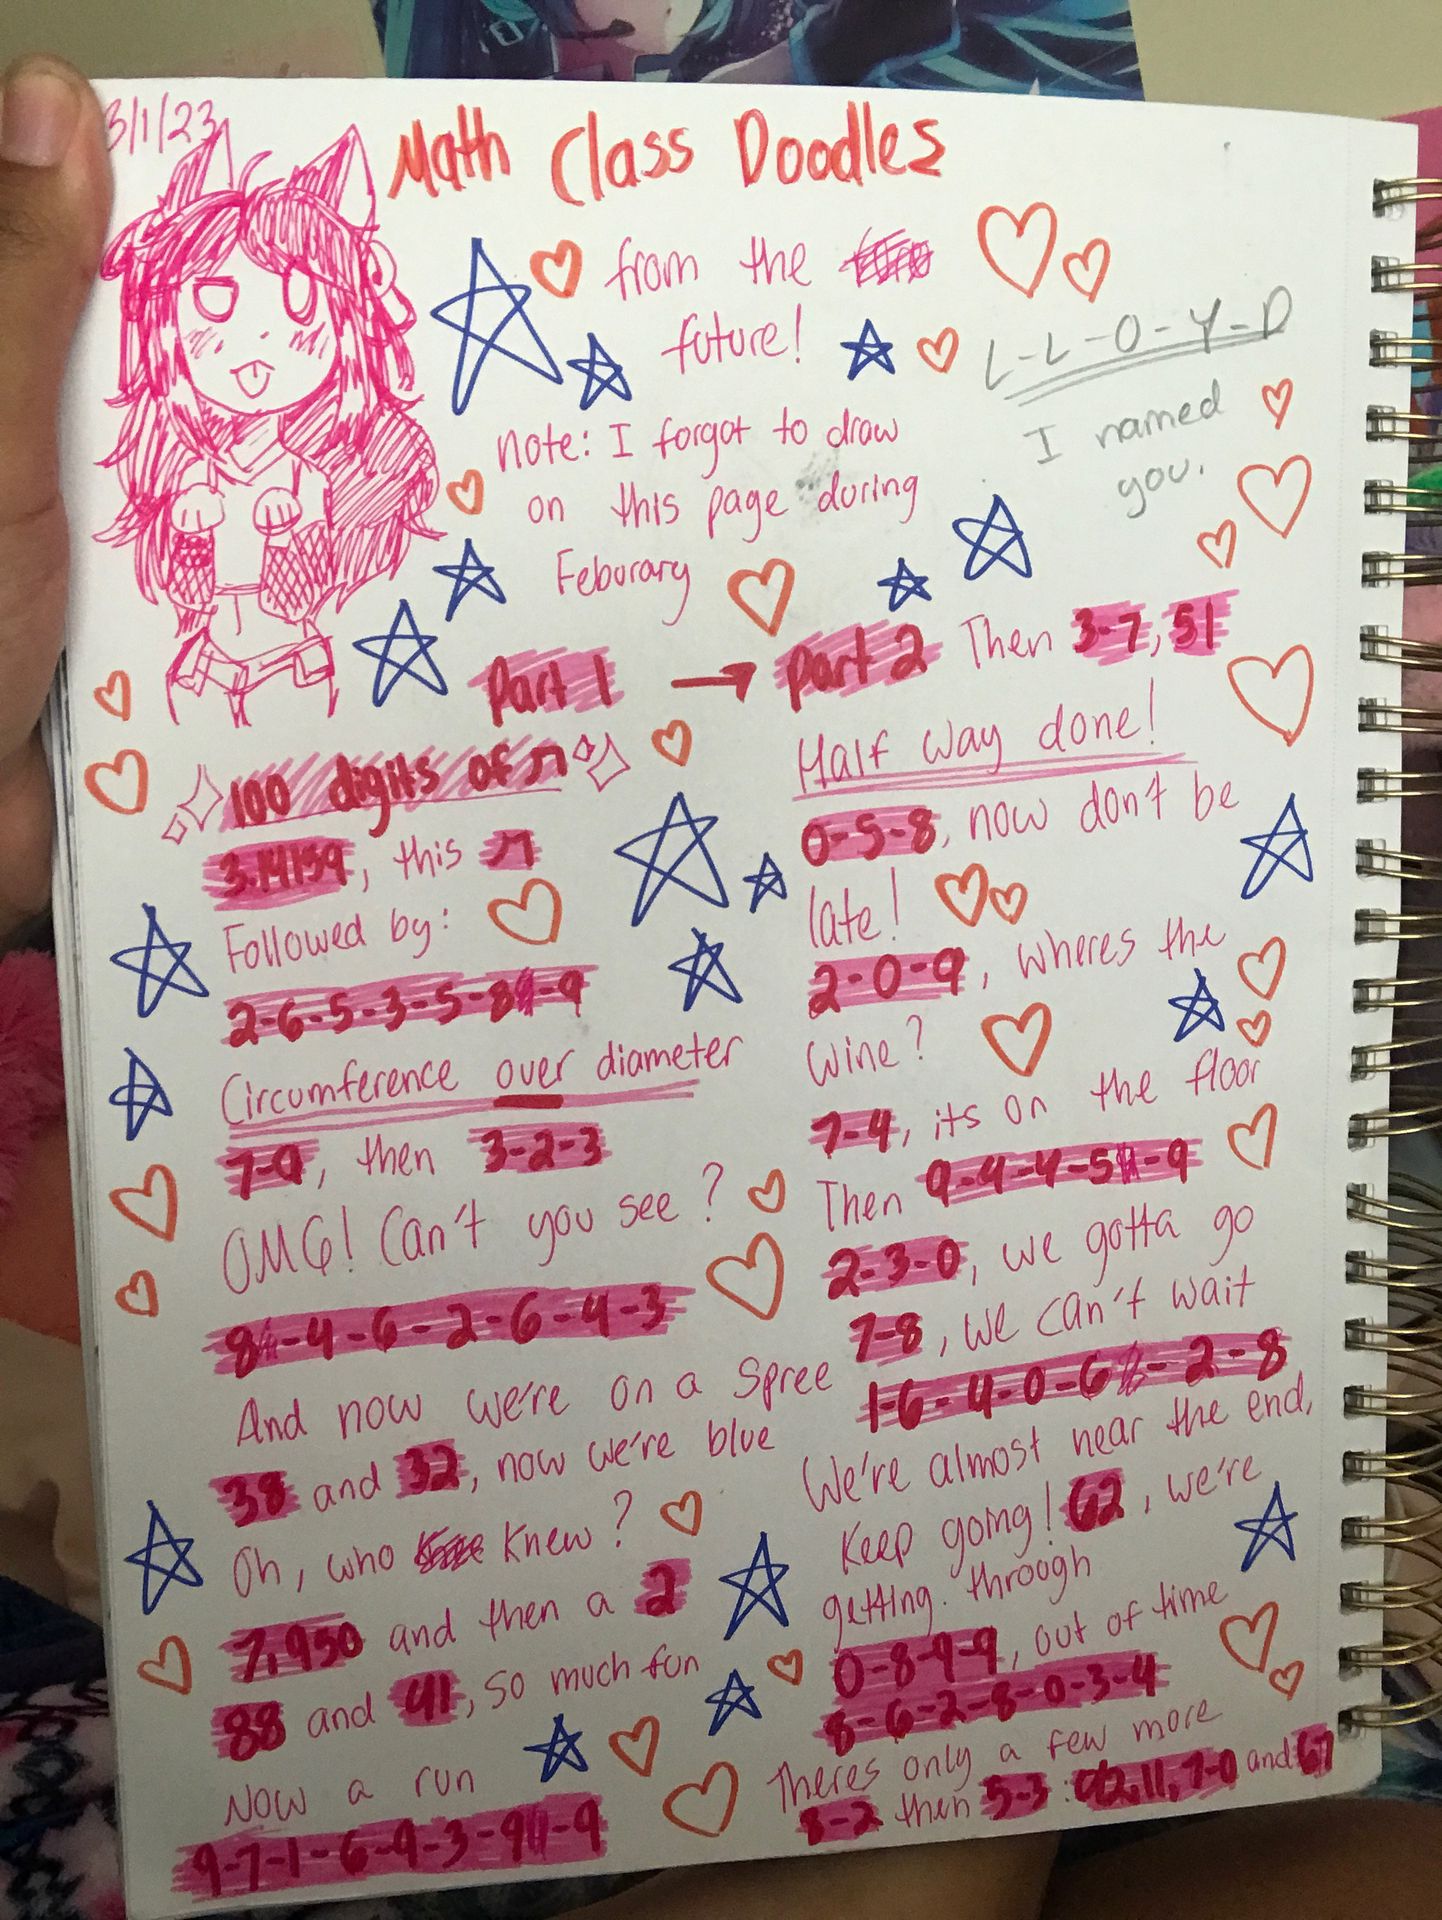 3/1/23
Math Class Doodles
from the
future!
L-L-O-Y-D
I named
you.
note: I forgot to draw
on this page during
Feburary
Part 1 →
100 digits of π
3.14159, this π
Followed by:
2-6-5-3-5-8-9
Circumference over diameter
7-9, then 3-2-3
OMG! Can't you see?
8-4-6-2-6-4-3
And now we're on a spree
38 and 32, now we're blue
Oh, who knew?
7,950 and then a 2
88 and 41, so much fun
Now a run
9-7-1-6-9-3-9-9
Part 2 Then 3-7, 51
Half way done!
0-5-8, now don't be
late!
2-0-9, wheres the
wine?
7-4, its on the floor
Then 9-4-4-5-9
2-3-0, we gotta go
7-8, we can't wait
1-6-4-0-6-2-8
We're almost near the end,
keep going! 62, we're
getting through
0-8-9-9, out of time
8-6-2-8-0-3-4
Theres only a few more
8-2 then 5-3: 42, 11, 7-0 and 67